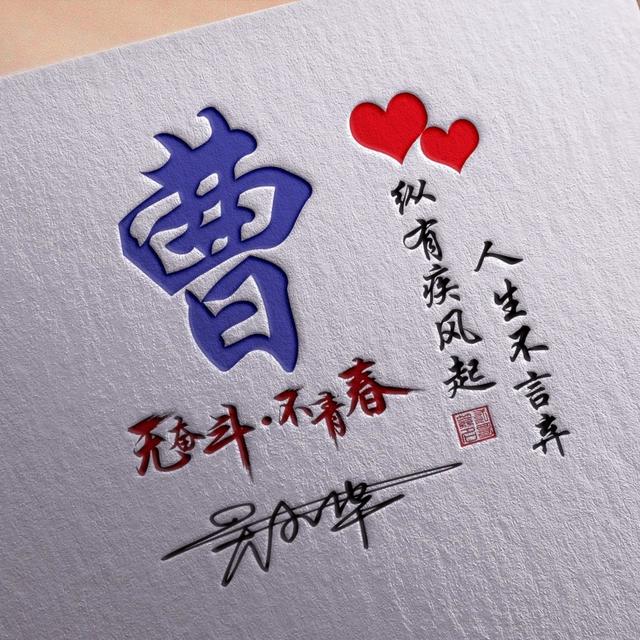 曹
纵有疾风起
人生不言弃
无奋斗·不青春